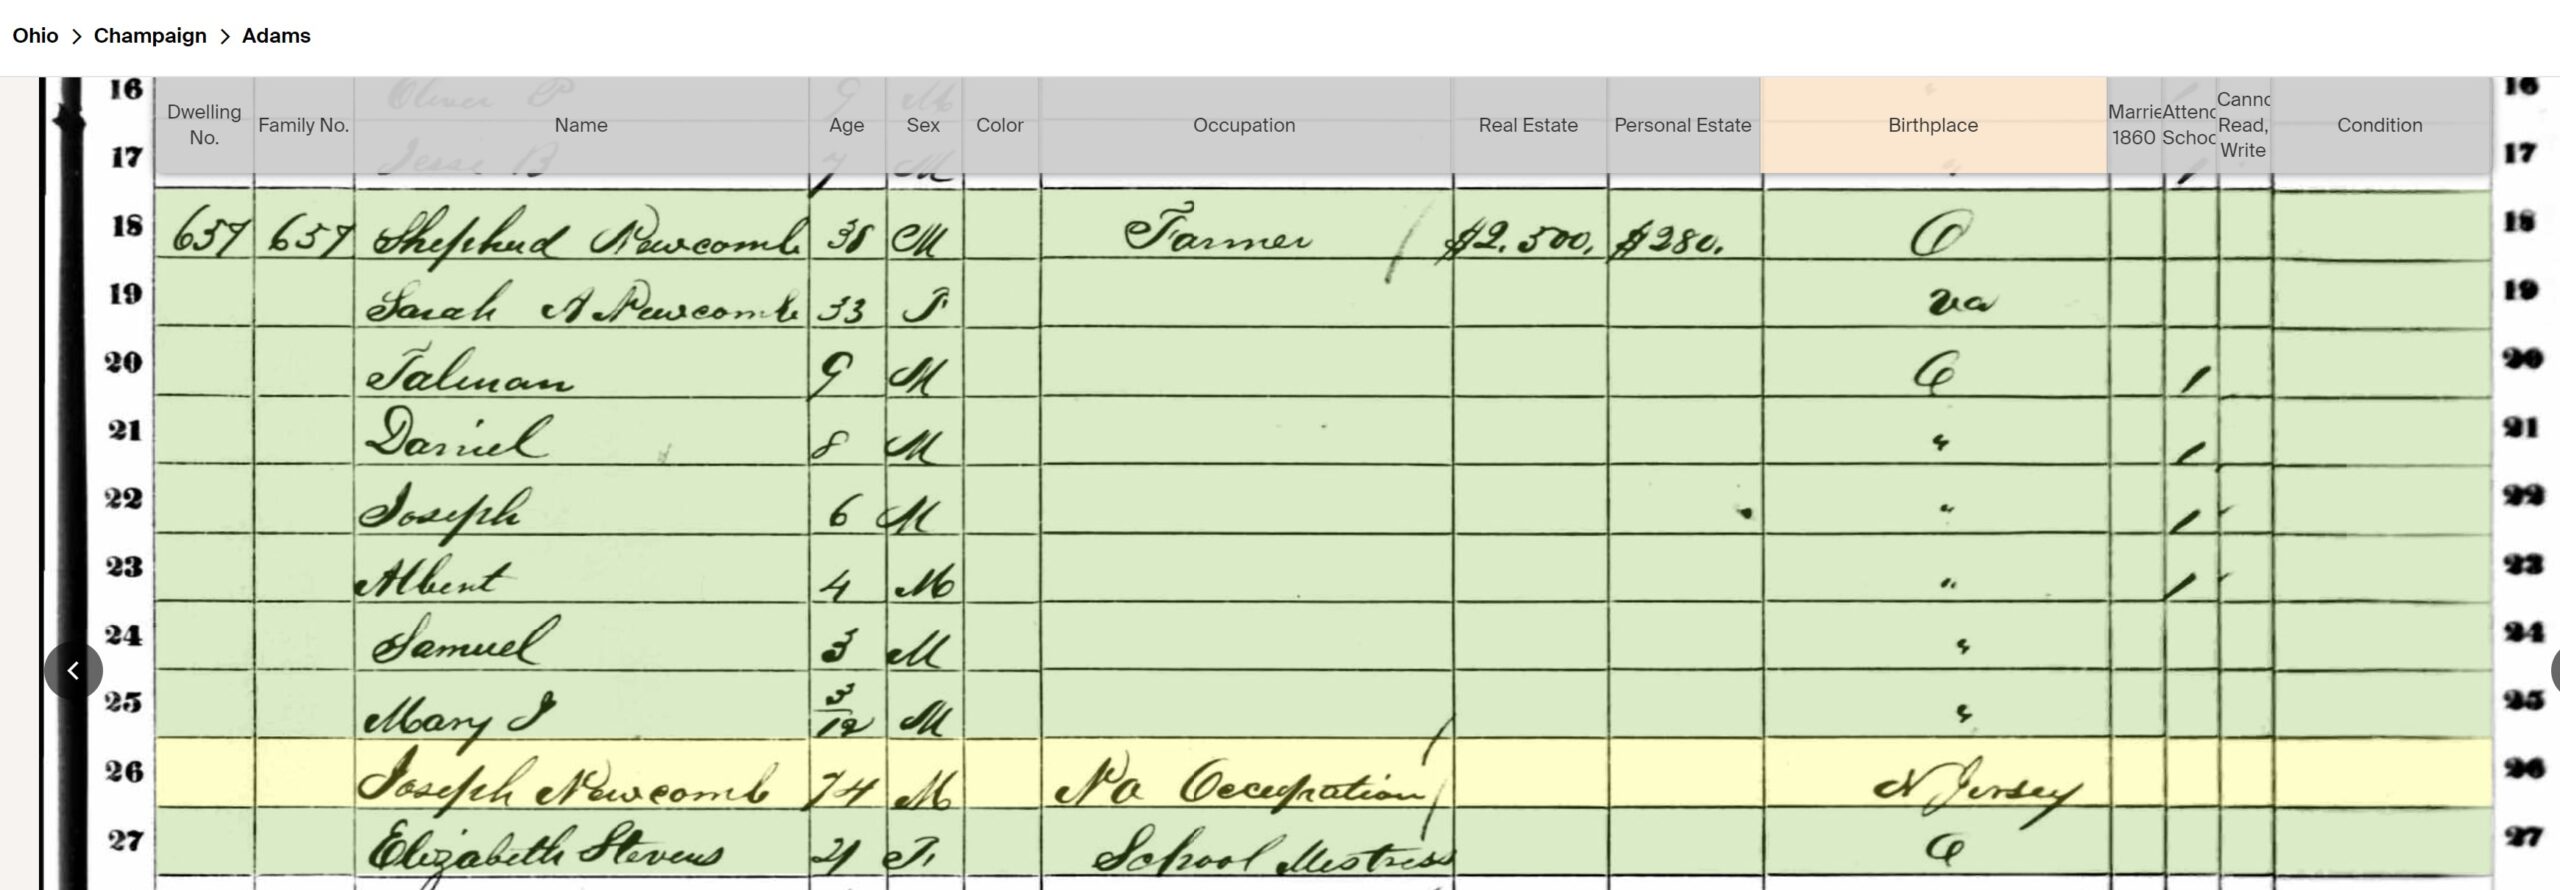 Ohio > Champaign > Adams
16 Oliver P 9 M " 16
Dwelling No. Family No. Name Age Sex Color Occupation Real Estate Personal Estate Birthplace Marrie 1860 Attend Schoo Canno Read, Write Condition
17 Jesse B 7 M " / 17
18 657 657 Shepherd Newcomb 38 M Farmer $2.500. $280. O 18
19 Sarah A Newcomb 33 F Va 19
20 Talman 9 M O / 20
21 Daniel 8 M " / 21
22 Joseph 6 M " / 22
23 Albert 4 M " / 23
24 Samuel 3 M " 24
25 Mary J 3/12 M " 25
26 Joseph Newcomb 74 M No Occupation N Jersey 26
27 Elizabeth Stevens 21 F. School Mistress O 27